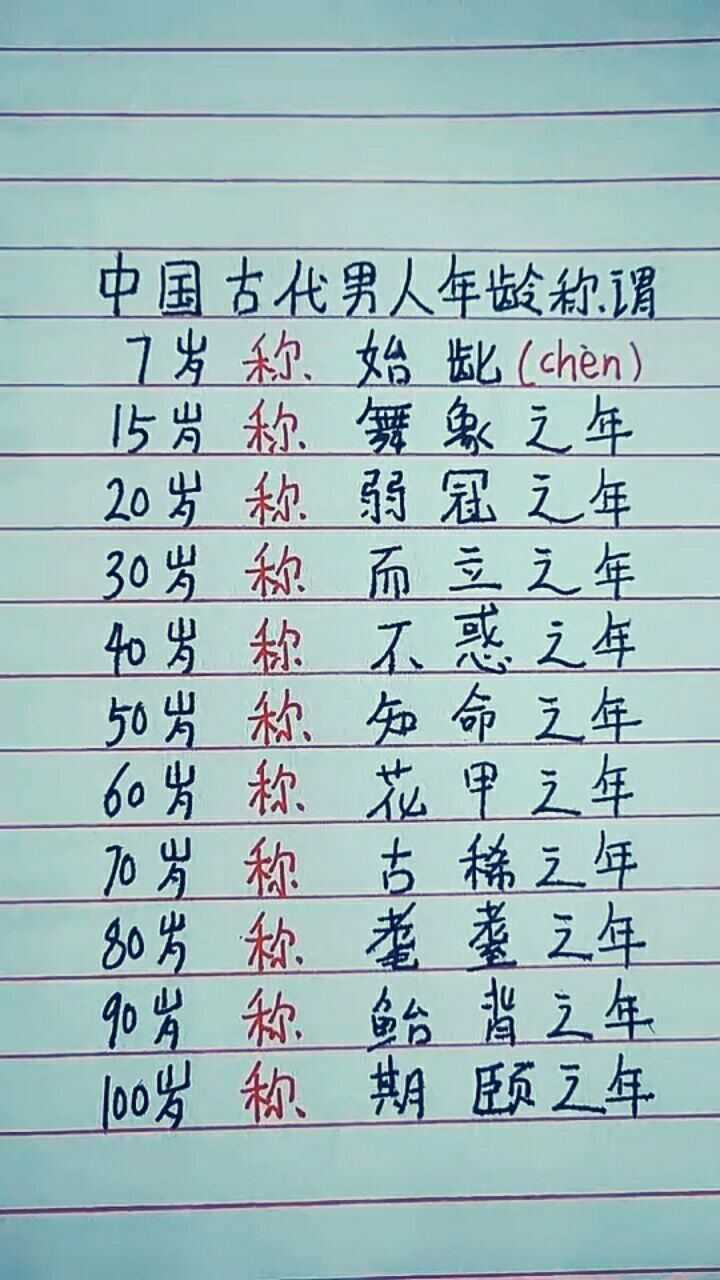 中国古代男人年龄称谓
7岁 称 始龀(chèn)
15岁 称 舞象之年
20岁 称 弱冠之年
30岁 称 而立之年
40岁 称 不惑之年
50岁 称 知命之年
60岁 称 花甲之年
70岁 称 古稀之年
80岁 称 耄耋之年
90岁 称 鲐背之年
100岁 称 期颐之年